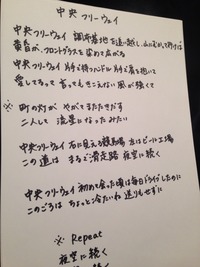 中央フリーウェイ
中央フリーウェイ 調布基地を追い越し 山に向かって行けば
黄昏が フロントグラスを 染めて広がる
中央フリーウェイ 片手で持つハンドル 片手で肩を抱いて
愛してるって 言ってもきこえない 風が強くて
※ 町の灯が やがてまたたきだす
二人して 流星になったみたい
中央フリーウェイ 右に見える競馬場 左はビール工場
この道は まるで滑走路 夜空に続く
中央フリーウェイ 初めて会った頃は毎日ドライブしたのに
このごろは ちょっと冷たいね 送りもせずに
※ Repeat
夜空に続く
夜空に続く